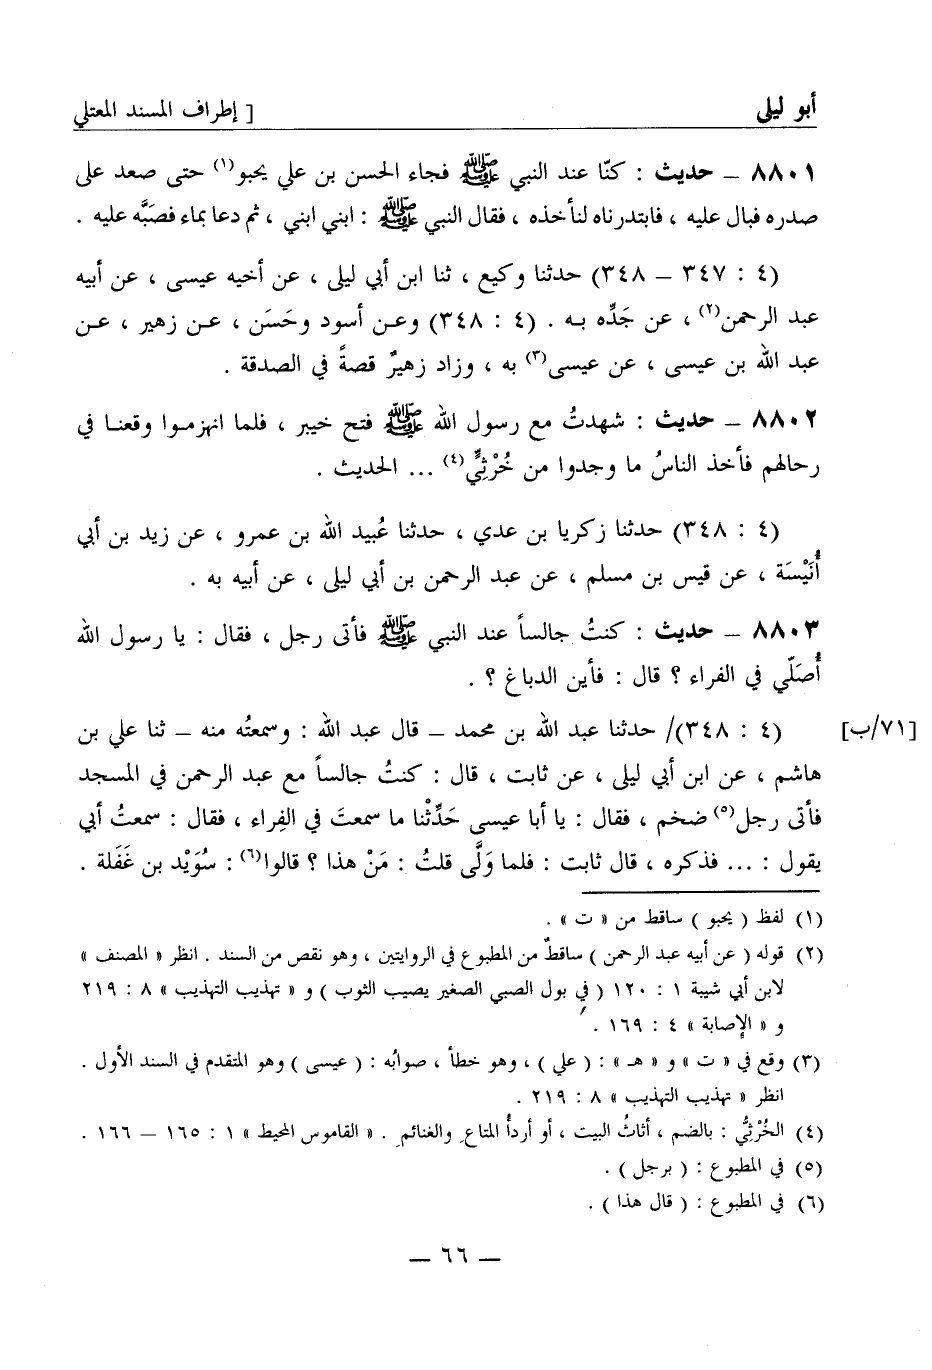 أبو ليلى [ إطراف المسند المعتلي
٨٨٠١ – حديث : كنّا عند النبي ﷺ فجاء الحسن بن علي يحبو(١) حتى صعد على
صدره فبال عليه ، فابتدرناه لنأخذه ، فقال النبي ﷺ : ابني ابني ، ثم دعا بماء فصبَّه عليه .
(٤ : ٣٤٧ – ٣٤٨) حدثنا وكيع ، ثنا ابن أبي ليلى ، عن أخيه عيسى ، عن أبيه
عبد الرحمن(٢) ، عن جَدِّه به . (٤ : ٣٤٨) وعن أسود وحَسَن ، عن زهير ، عن
عبد الله بن عيسى ، عن عيسى(٣) به ، وزاد زهيرٌ قصةً في الصدقة .
٨٨٠٢ – حديث : شهدتُ مع رسول الله ﷺ فتح خيبر ، فلما انهزموا وقعنا في
رحالهم فأخذ الناسُ ما وجدوا من خُرْثِيٍّ(٤) ... الحديث .
(٤ : ٣٤٨) حدثنا زكريا بن عدي ، حدثنا عُبيد الله بن عمرو ، عن زيد بن أبي
أُنَيْسَة ، عن قيس بن مسلم ، عن عبد الرحمن بن أبي ليلى ، عن أبيه به .
٨٨٠٣ – حديث : كنتُ جالساً عند النبي ﷺ فأتى رجل ، فقال : يا رسول الله
أُصَلّي في الفراء ؟ قال : فأين الدباغ ؟ .
[٧١/ب] (٤ : ٣٤٨)/ حدثنا عبد الله بن محمد – قال عبد الله : وسمعتُه منه – ثنا علي بن
هاشم ، عن ابن أبي ليلى ، عن ثابت ، قال : كنتُ جالساً مع عبد الرحمن في المسجد
فأتى رجل(٥) ضخم ، فقال : يا أبا عيسى حَدِّثْنا ما سمعتَ في الفِراء ، فقال : سمعتُ أبي
يقول : ... فذكره ، قال ثابت : فلما وَلَّى قلتُ : مَنْ هذا ؟ قالوا(٦) : سُوَيْد بن غَفَلة .
(١) لفظ ( يحبو ) ساقط من « ت » .
(٢) قوله ( عن أبيه عبد الرحمن ) ساقطٌ من المطبوع في الروايتين ، وهو نقص من السند . انظر « المصنف »
لابن أبي شيبة ١ : ١٢٠ ( في بول الصبي الصغير يصيب الثوب ) و « تهذيب التهذيب » ٨ : ٢١٩
و « الإصابة » ٤ : ١٦٩ .
(٣) وقع في « ت » و « هـ » : ( علي ) ، وهو خطأ ، صوابُه : ( عيسى ) وهو المتقدم في السند الأول .
انظر « تهذيب التهذيب » ٨ : ٢١٩ .
(٤) الخُرْثِيُّ : بالضم ، أثاثُ البيت ، أو أردأُ المتاعِ والغنائمِ . « القاموس المحيط » ١ : ١٦٥ – ١٦٦ .
(٥) في المطبوع : ( برجل ) .
(٦) في المطبوع : ( قال هذا ) .
– ٦٦ –